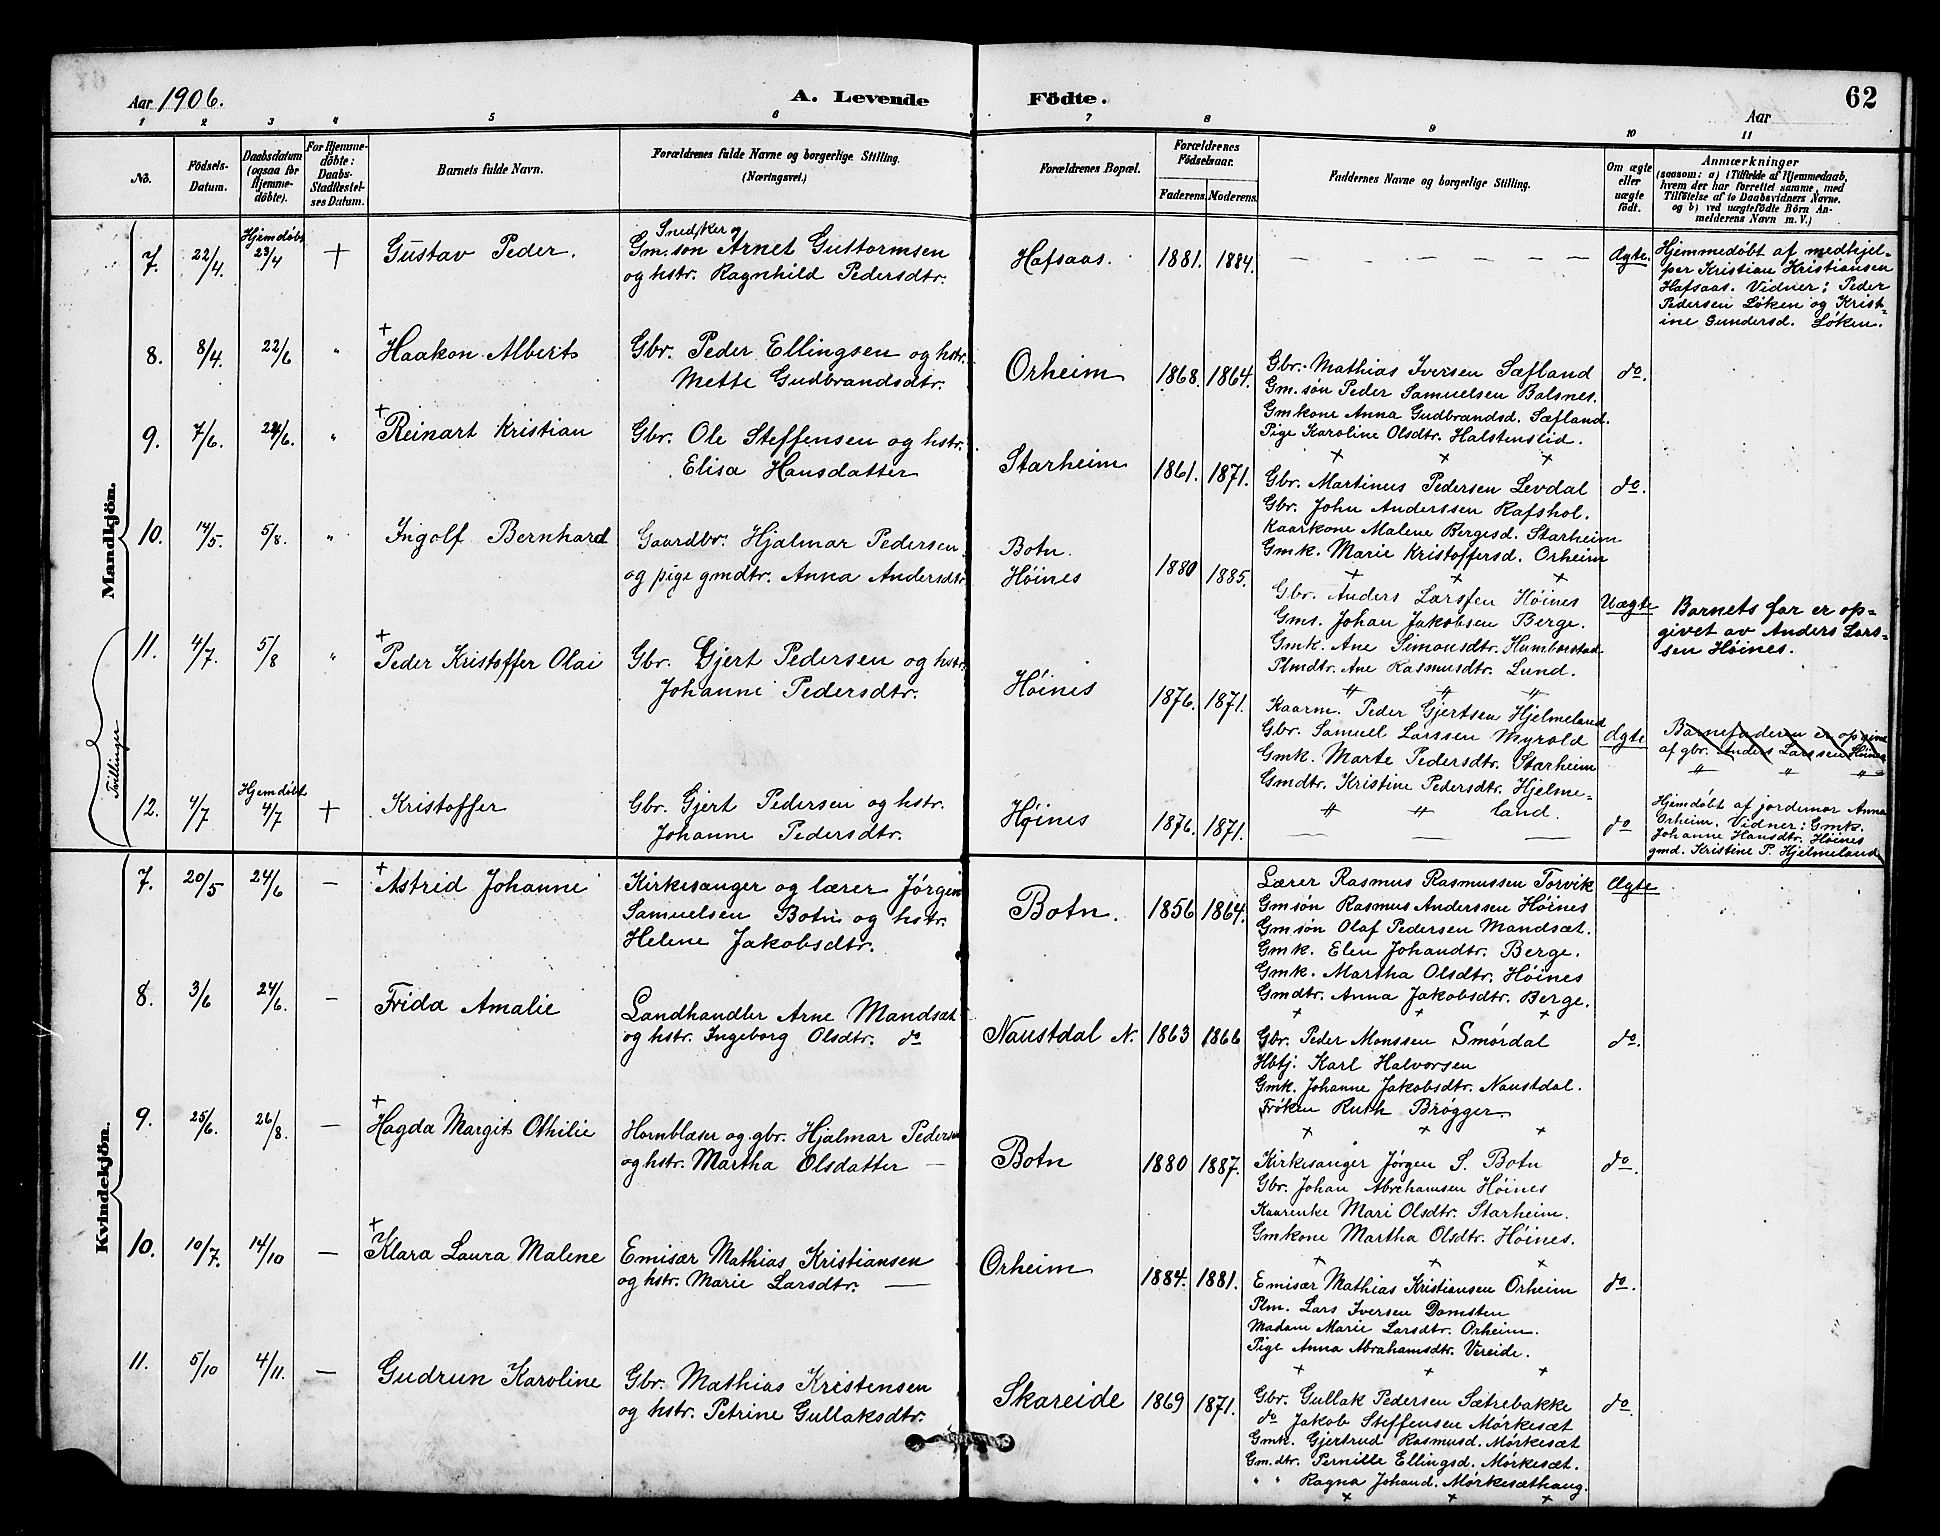 Aar 1906.
A. Levende Födte.
Aar
62
1 2 3 4 5 6 7 8 9 10 11
No.
Födsels-Datum.
Daabsdatum (ogsaa for Hjemme-döbte).
For Hjemme-döbte: Daabs-Stadfæstel-ses Datum.
Barnets fulde Navn.
Forældrenes fulde Navne og borgerlige Stilling. (Næringsvei.)
Forældrenes Bopæl.
Forældrenes Födselsaar.
Faderens. Moderens.
Faddernes Navne og borgerlige Stilling.
Om ægte eller uægte födt.
Anmærkninger
(saasom: a) i Tilfælde af Hjemmedaab,
hvem der har forrettet samme, med
Tilföielse af to Daabsvidners Navne.
og b) ved uægtefödte Börn An-
melderens Navn m. V.)
Mandkjön.
7. 22/4. Hjemdøbt 23/4 + Gustav Peder.
Snedker og
Gm.søn Arnet Guttormsen
og hstr. Ragnhild Pedersdtr.
Hafsaas. 1881. 1884. — — — — — — Ægte.
Hjemmedøbt af medhjel-
per Kristian Kristiansen
Hafsaas. Vidner: Peder
Pedersen Løken og Krist-
ine Gundersd. Løken.
8. 8/4. 22/6 " + Haakon Albert
Gbr. Peder Ellingsen og hstr.
Mette Gudbrandsdtr.
Orheim 1868. 1864.
Gbr. Mathias Iversen Sæfland
Gm.søn Peder Samuelsen Balsnes.
Gmkone Anna Gudbrandsd. Sæfland.
Pige Karoline Olsdtr. Halstenslid.
+ + +
do.
9. 7/6. 24/6. " + Reinart Kristian
Gbr. Ole Steffensen og hstr.
Elisa Hansdatter
Starheim 1861. 1871.
Gbr. Martinus Pedersen Levdal
Gbr. John Anderssen Rafshol.
Kaarkone Malene Bergesd. Starheim
Gmk. Marie Kristoffersd. Orheim
+ + +
do.
10. 14/5. 5/8. " Ingolf Bernhard
Gaardbr. Hjalmar Pedersen
og pige gmdtr. Anna Andersdtr.
Botn.
Høines
1880 1885.
Gbr. Anders Larssen Høines
Gms. Johan Jakobsen Berge.
Gmk. Ane Simonsdtr. Humborstad
Plmdtr. Ane Rasmusdtr. Lund.
" " "
Uægte
Barnets far er op-
givet av Anders Lars-
sen Høines.
Tvillinger
11. 4/7. 5/8 " + Peder Kristoffer Olai
Gbr. Gjert Pedersen og hstr.
Johanne Pedersdtr.
Høines 1876. 1871.
Kaarm. Peder Gjertsen Hjelmeland
Gbr. Samuel Larssen Myrold
Gmk. Marte Pedersdtr. Starheim
Gmdtr. Kristine Pedersdtr. Hjelme-
" " land.
Ægte
Barnefaderen er opgivet
af gbr. Anders Larssen Høines
" " "
12. 4/7 Hjemdøbt 4/7 + Kristoffer
Gbr. Gjert Pedersen og hstr.
Johanne Pedersdtr.
Høines 1876. 1871. — — — — do
Hjemdøbt af jordemor Anna
Orheim. Vidner: Gmk.
Johanne Hansdtr. Høines
gmd. Kristine P. Hjelmeland
Kvindekjön.
7. 20/5 24/6 — + Astrid Johanne
Kirkesanger og lærer Jørgen
Samuelsen Botn og hstr.
Helene Jakobsdtr.
Botn. 1856 1864.
Lærer Rasmus Rasmussen Torvik
Gmsøn Rasmus Anderssen Høines
Gm.søn Olaf Pedersen Mandsæt.
Gmk. Elen Johandtr. Berge.
Gmk. Martha Olsdtr. Høines
Gmdtr. Anna Jakobsdtr. Berge.
+ + +
Ægte
8. 3/6 24/6. — Frida Amalie
Landhandler Arne Mandsæt
og hstr. Ingeborg Olsdtr. do
Naustdal N. 1863 1866
Gbr. Peder Monssen Smørdal
Hbtj. Karl Halvorsen
Gmk. Johanne Jakobsdtr. Naustdal.
Frøken Ruth Brøgger.
+ + +
do.
9. 25/6. 26/8. — + Hagda Margit Othilie
Hornblæser og gbr. Hjalmar Pedersen
og hstr. Martha Olsdatter —
Botn 1880 1887.
Kirkesanger Jørgen S. Botn
Gbr. Johan Abrehamsen Høines
Kaarenke Mari Olsdtr. Starheim.
Gmkone Martha Olsdtr. Høines.
+ + +
do.
10. 10/7. 14/10 — + Klara Laura Malene
Emisær Mathias Kristiansen
og hstr. Marie Larsdtr. —
Orheim 1884. 1881.
Emisær Mathias Kristiansen Orheim
Plm. Lars Iversen Domsten
Madam Marie Larsdtr. Orheim.
Pige Anna Abrahamsdtr. Vereide.
+ + +
do.
11. 5/10 4/11. — Gudrun Karoline
Gbr. Mathias Kristensen
og hstr. Petrine Gullaksdtr.
Skareide 1869 1871.
Gbr. Gullak Pedersen Sætrebakke
do Jakob Steffensen Mørkesæt
Gmk. Gjertrud Rasmusd. Mørkesæt
Gm.dtr. Pernille Ellingsd. Mørkesæt.
" " Ragna Johand. Mørkesæthaug.
+ + +
do.